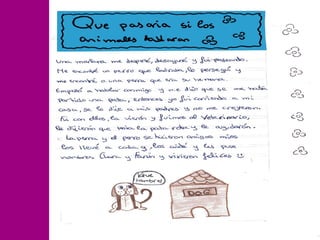 Que pasaria si los
animales hablaran
Una mañana me desperté, desayuné y fui paseando.
Me encontré un perro que hablaba, lo perseguí y
me encontré a una perra que era su hermana.
Empezó a hablar conmigo y me dijo que se me había
partido una pata, entonces yo fui corriendo a mi
casa, se lo dije a mis padres y no me creyeron.
Fui con ellos, la vieron y fuimos al veterinario,
le dijeron que tenía la pata rota y le ayudaron.
La perra y el perro se hicieron amigos míos
los llevé a casa y los cuidé y les puse
nombre. Clara y y vivieron felices
¡Que
hambre!
DOG